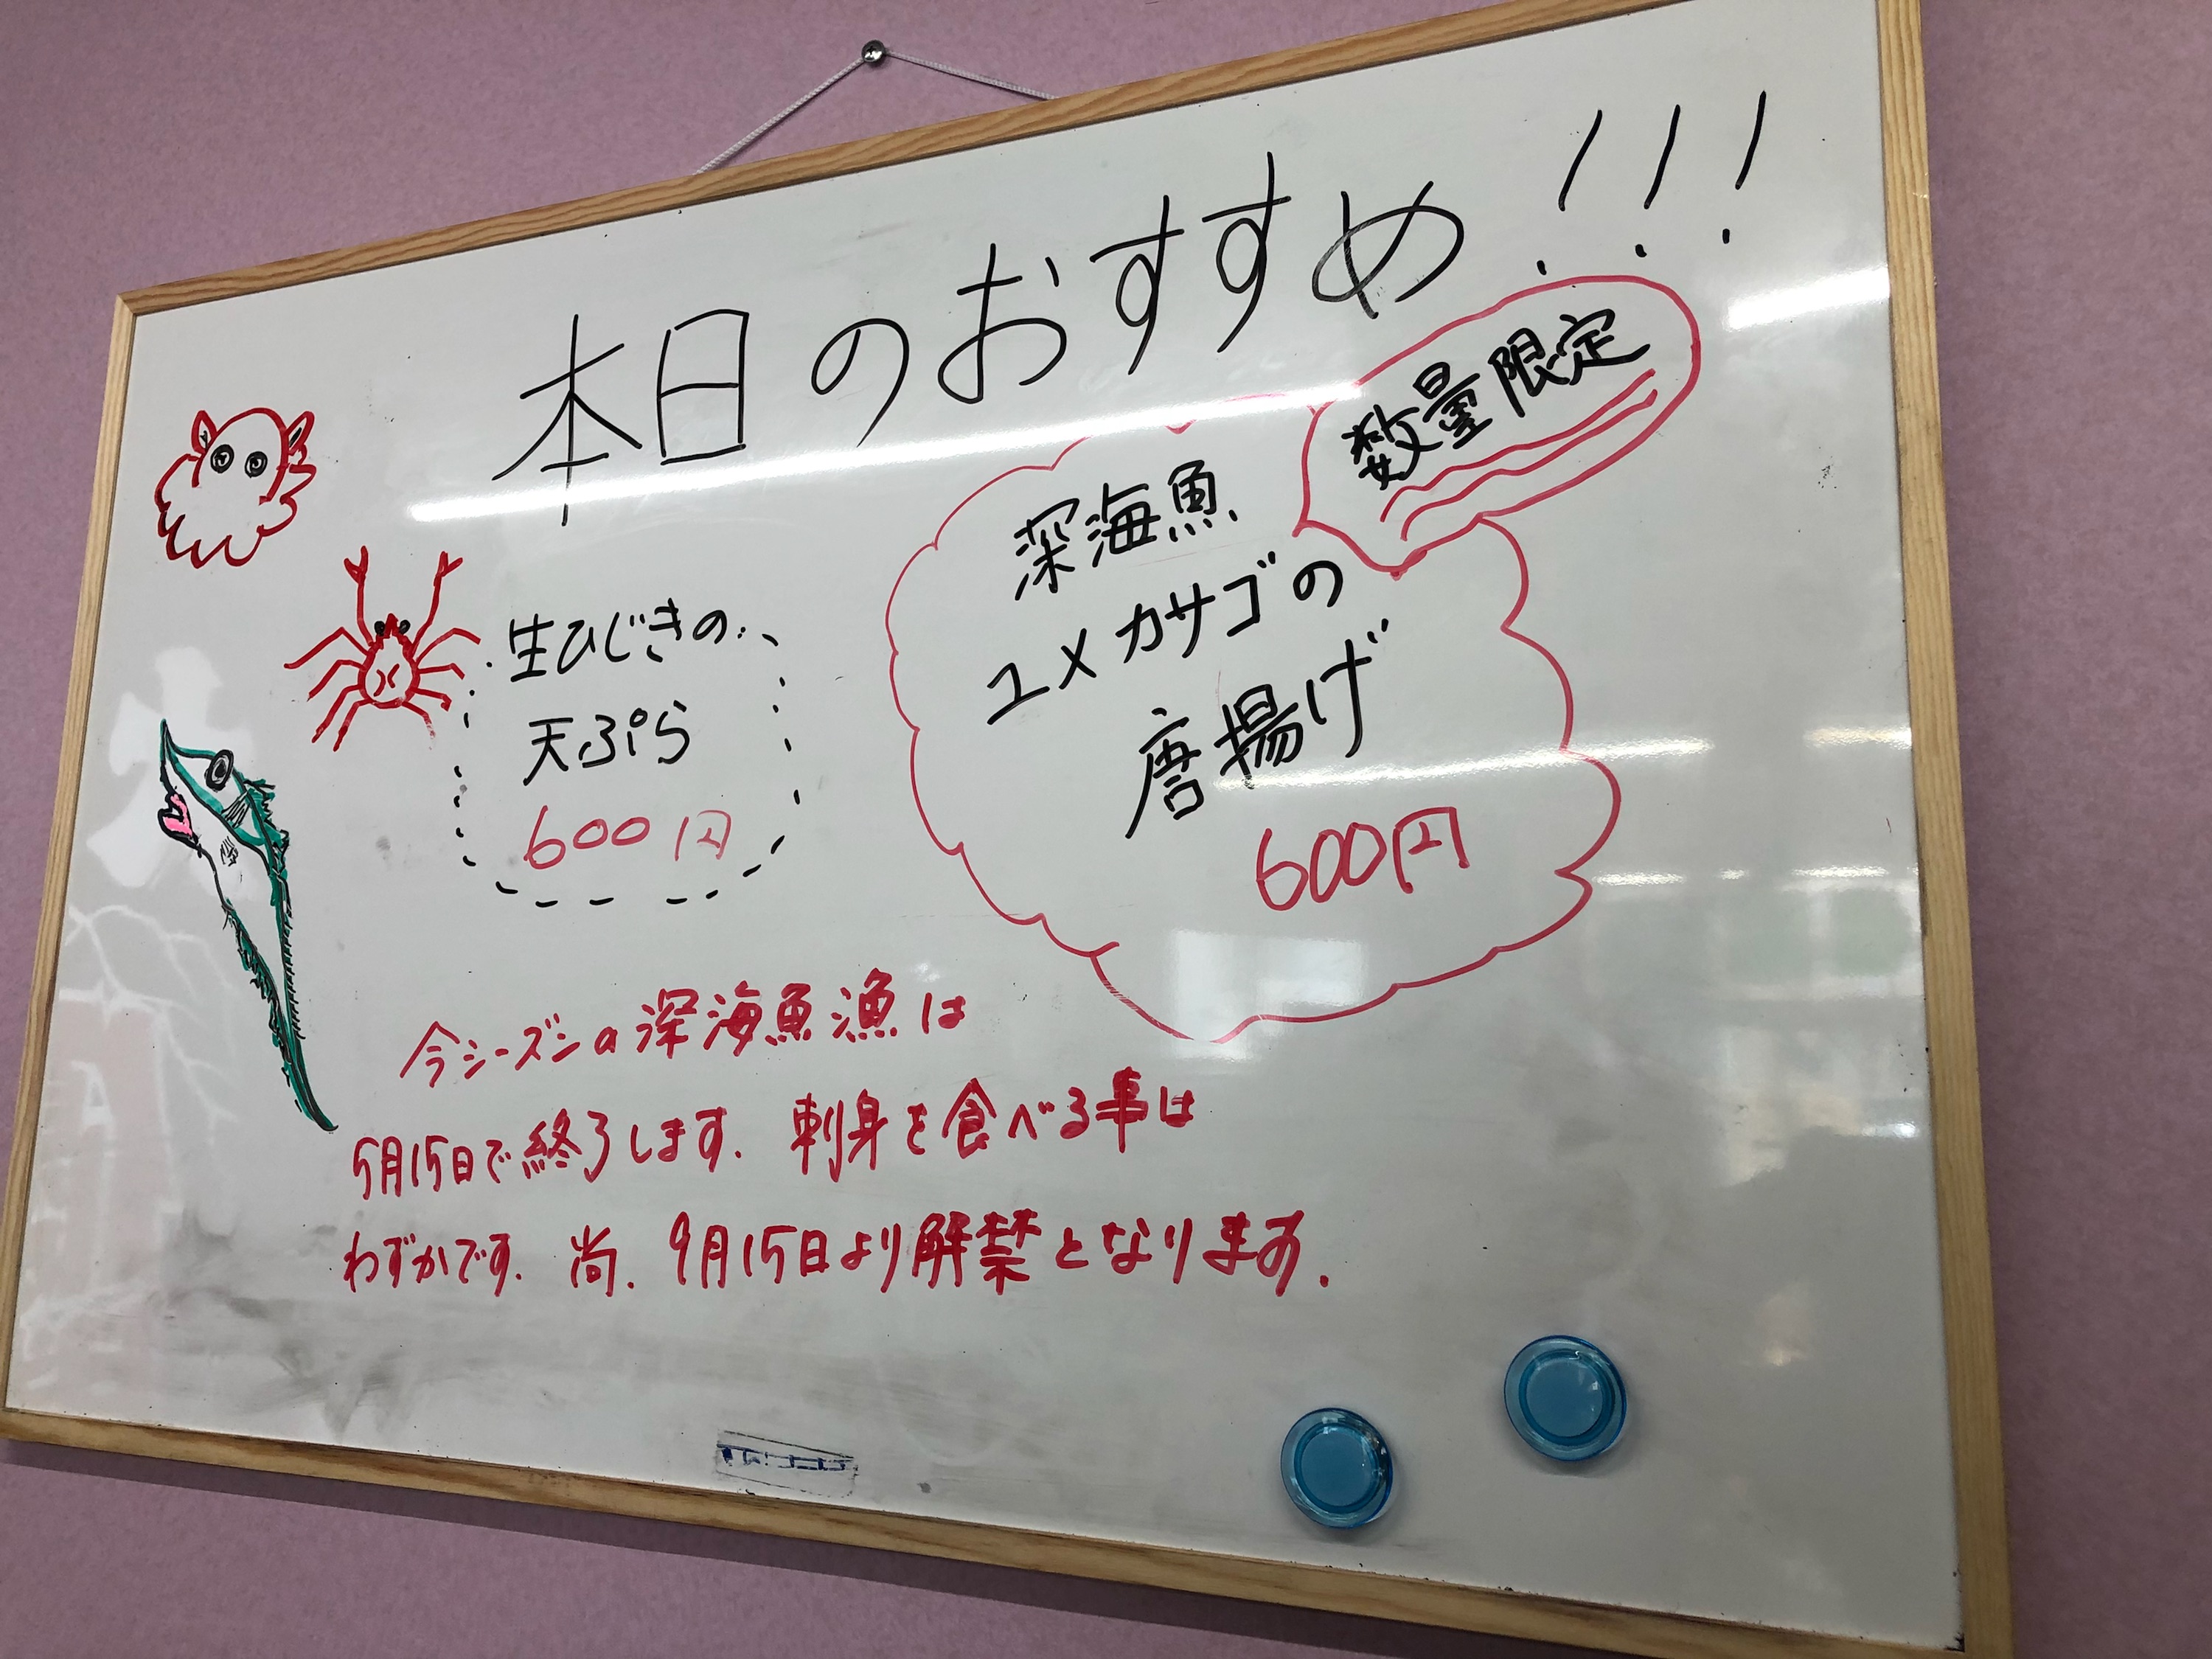 本日のおすすめ!!!
数量限定
深海魚
ユメカサゴの
唐揚げ
600円
生ひじきの
天ぷら
600円
今シーズンの深海魚漁は
5月15日で終了します. 刺身を食べる事は
わずかです. 尚. 9月15日より解禁となります.